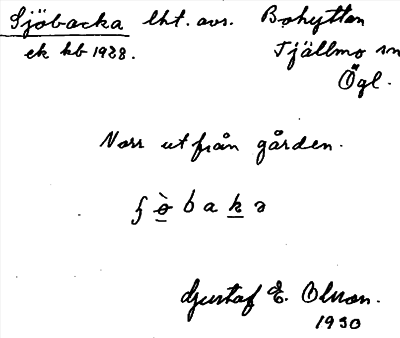 Sjöbacka lht. avs. Bohyttan
ek kb 1938. Tjällmo sn
Ögl.
Norr ut från gården.
Gustaf E. Olsson.
1930